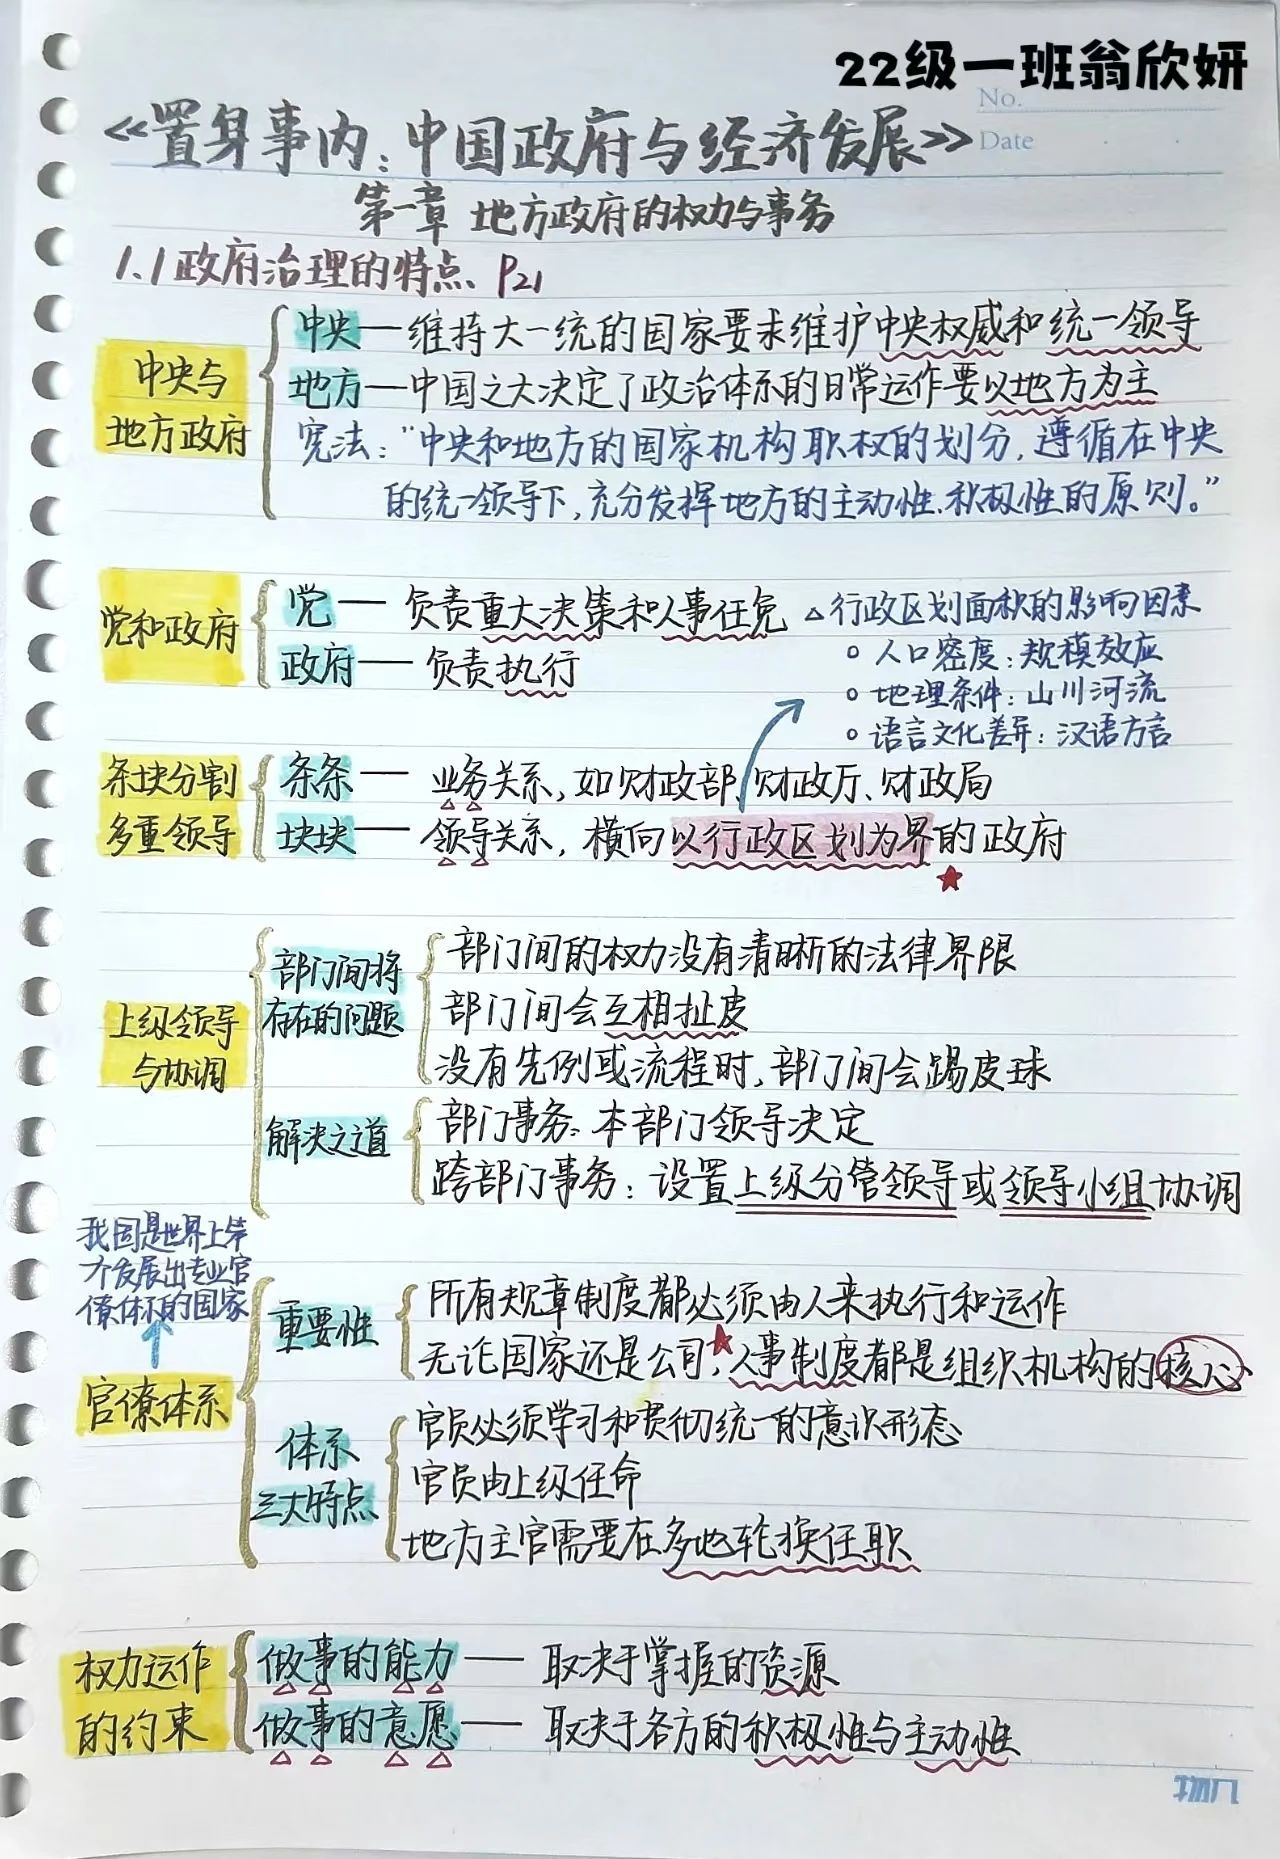 22级一班翁欣妍
No.
Date
《置身事内：中国政府与经济发展》
第一章 地方政府的权力与事务
1.1政府治理的特点 P21
中央与
地方政府
中央—维持大一统的国家要求维护中央权威和统一领导
地方—中国之大决定了政治体系的日常运作要以地方为主
宪法：“中央和地方的国家机构职权的划分，遵循在中央
的统一领导下，充分发挥地方的主动性、积极性的原则。”
党和政府
党—负责重大决策和人事任免
政府—负责执行
△行政区划面积的影响因素
○人口密度：规模效应
○地理条件：山川河流
○语言文化差异：汉语方言
条块分割
多重领导
条条—业务关系，如财政部、财政厅、财政局
块块—领导关系，横向以行政区划为界的政府
上级领导
与协调
部门间将
存在的问题
部门间的权力没有清晰的法律界限
部门间会互相扯皮
没有先例或流程时，部门间会踢皮球
解决之道
部门事务：本部门领导决定
跨部门事务：设置上级分管领导或领导小组协调
我国是世界上第
个发展出专业官
僚体系的国家
官僚体系
重要性
所有规章制度都必须由人来执行和运作
无论国家还是公司，人事制度都是组织机构的核心
体系
三大特点
官员必须学习和贯彻统一的意识形态
官员由上级任命
地方主官需要在多地轮换任职
权力运作
的约束
做事的能力—取决于掌握的资源
做事的意愿—取决于各方的积极性与主动性